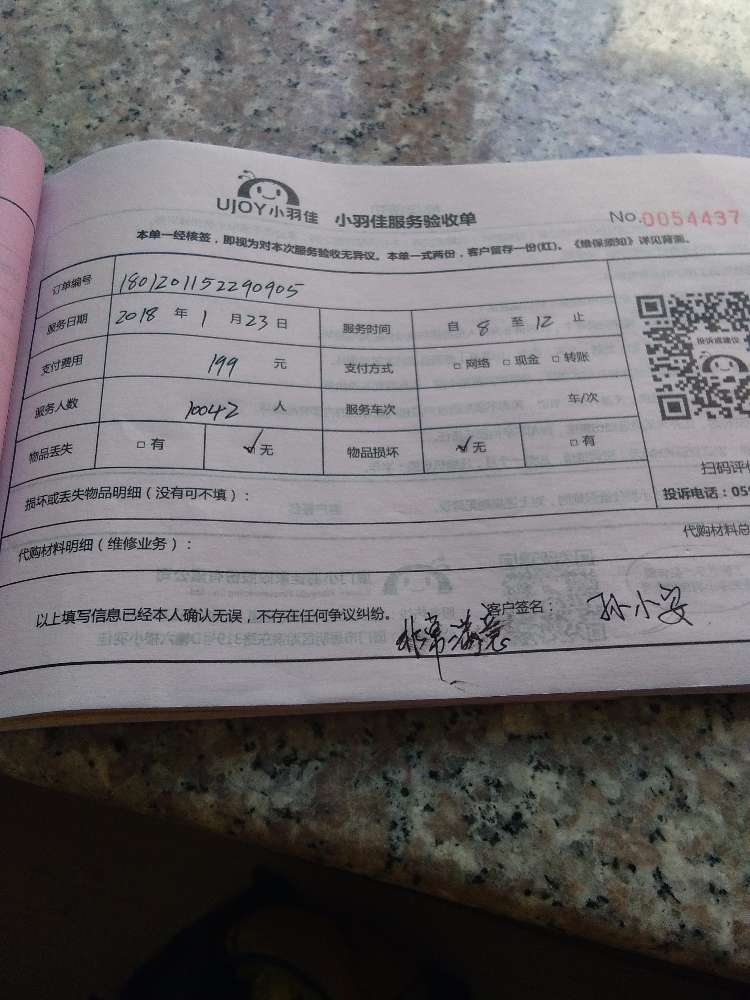 UJOY小羽佳 小羽佳服务验收单 No.0054437
本单一经核签，即视为对本次服务验收无异议。本单一式两份，客户留存一份(红)。《维保须知》详见背面。
订单编号 1801201152290905
服务日期 2018 年 1 月 23 日 服务时间 自 8 至 12 止
支付费用 199 元 支付方式 □ 网络 □ 现金 □ 转账
服务人数 10042 人 服务车次 车/次
投诉或建议
物品丢失 □ 有 ✓ 无 物品损坏 ✓ 无 □ 有
扫码评
损坏或丢失物品明细（没有可不填）：
投诉电话：059
代购材料明细（维修业务）： 代购材料总
以上填写信息已经本人确认无误，不存在任何争议纠纷。 客户签名：
非常满意